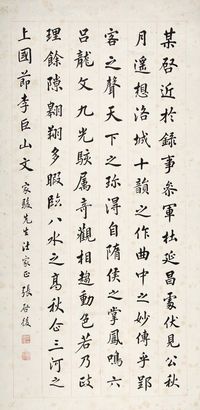 某啓近於錄事參軍杜延昌處伏見公秋
月遥想洛城十韻之作曲中之妙傳乎郢
客之聲天下之珍得自隋侯之掌鳳鳴六
呂龍文九光駭屬奇觀相趨動色若乃政
理餘隙翱翔多暇臨八水之高秋企三河之
上國 節李巨山文 家駿先生法家正 張啓後